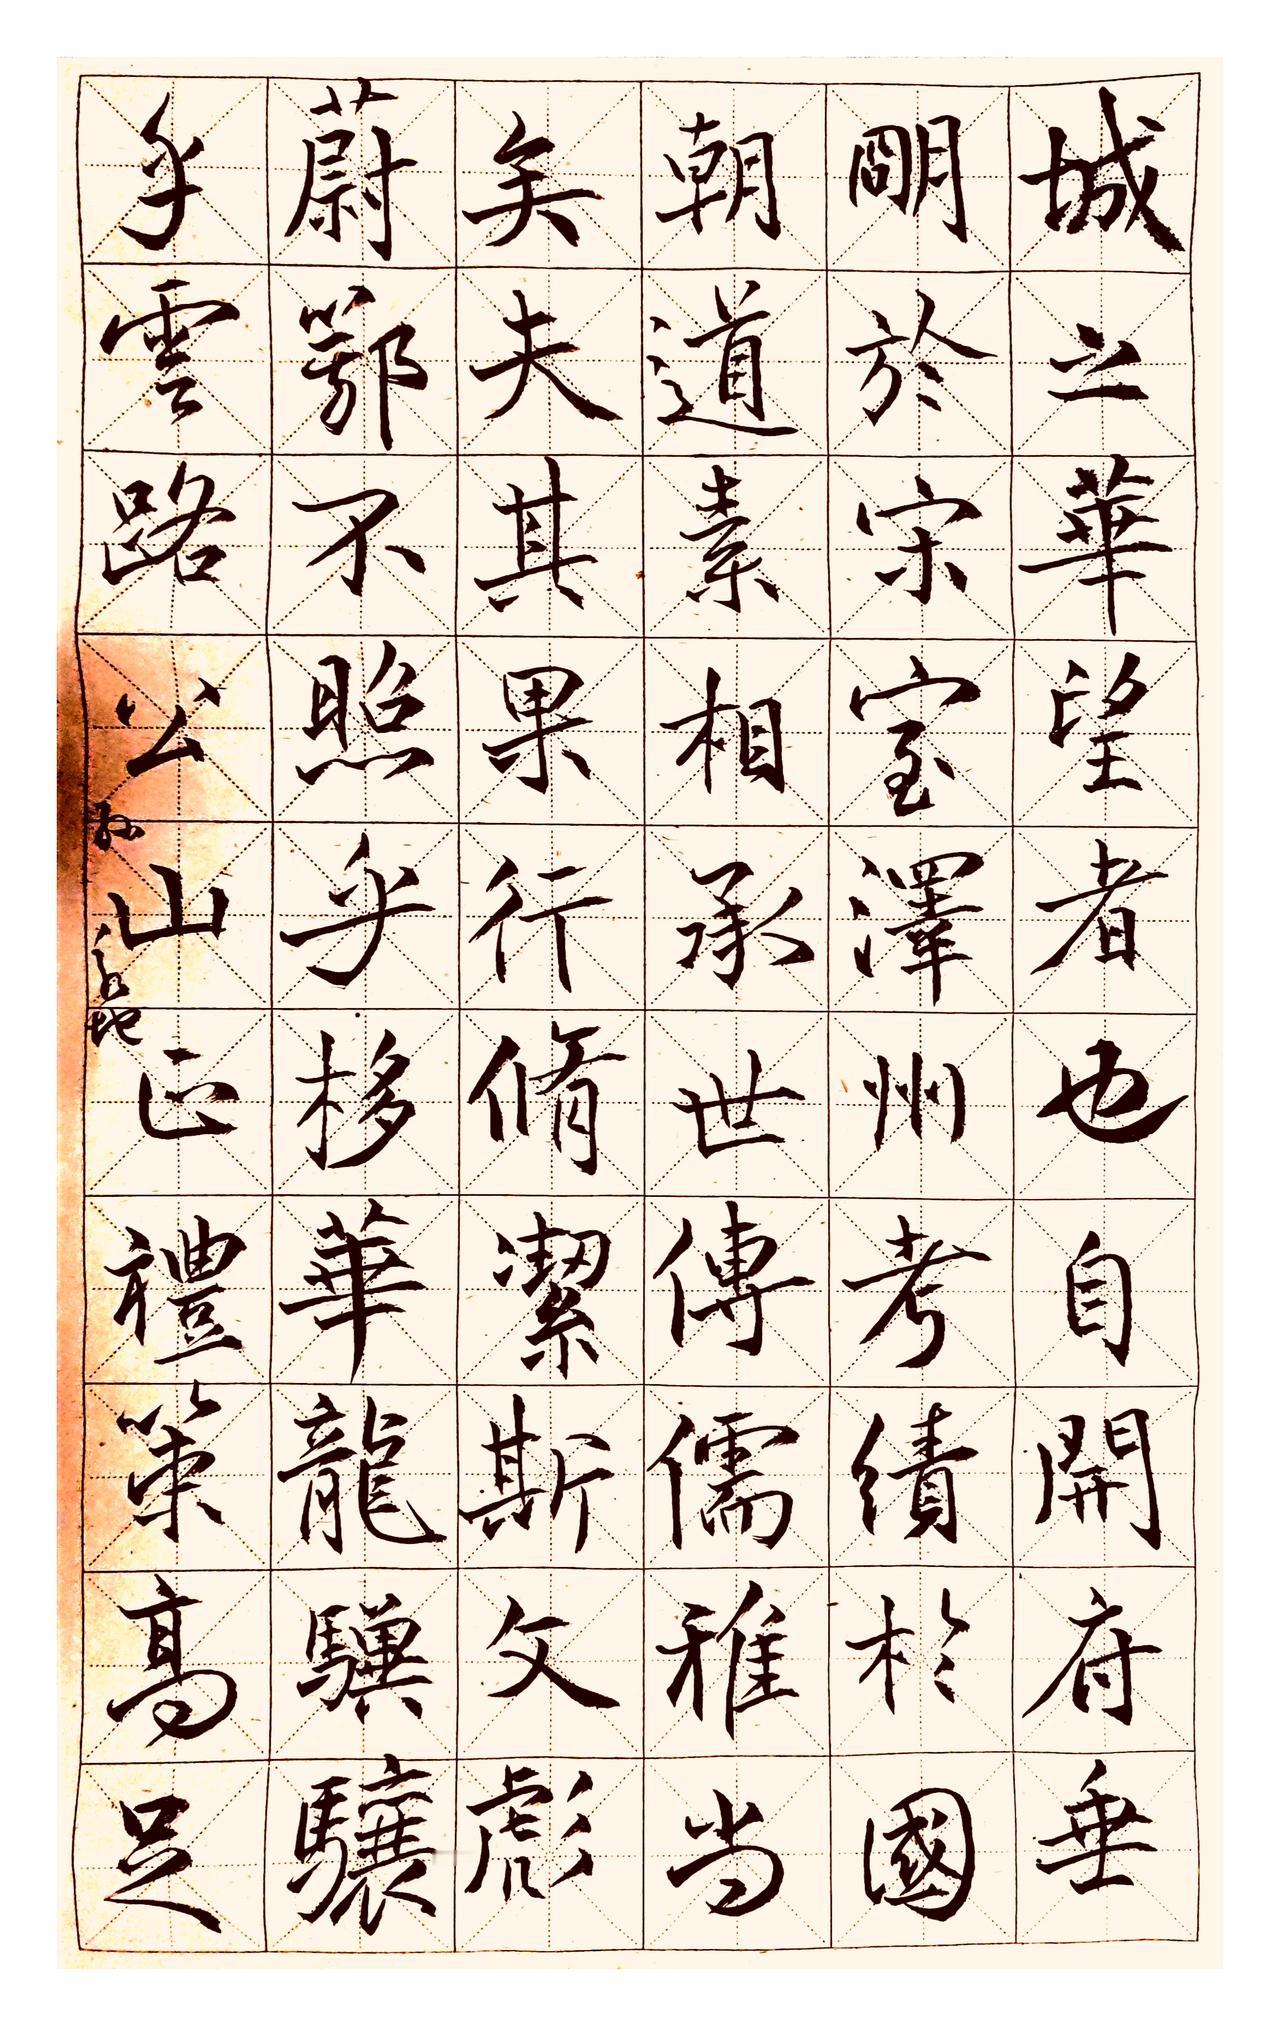 城之華望者也自開府垂
朙於宋室澤州考績於國
朝道素相承世傳儒雅尚
矣夫其果行脩潔斯文彪
蔚鄂不照乎栘華龍驥驤
乎雲路公山正禮策高足